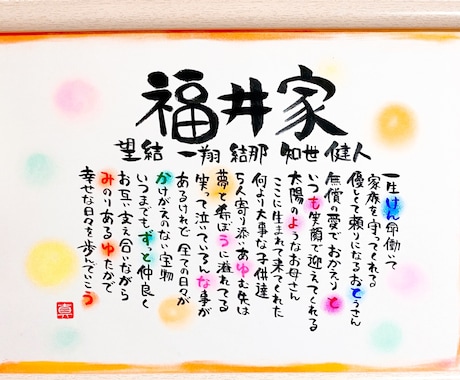 福井家
望結 一翔 結那 知世 健人
一生けん命働いて
家族を守ってくれる
優しくて頼りになるおとうさん
無償の愛でおかえりと
いつも笑顔で迎えてくれる
太陽のようなお母さん
ここに生まれて来てくれた
何より大事な子供達
5人寄り添いあゆむ先は
夢と希ぼうに溢れてる
笑って泣いていろんな事が
あるけれど全ての日々が
かけがえのない宝物
いつまでもずっと仲良く
お互い支え合いながら
みのりあるゆたかで
幸せな日々を歩んでいこう